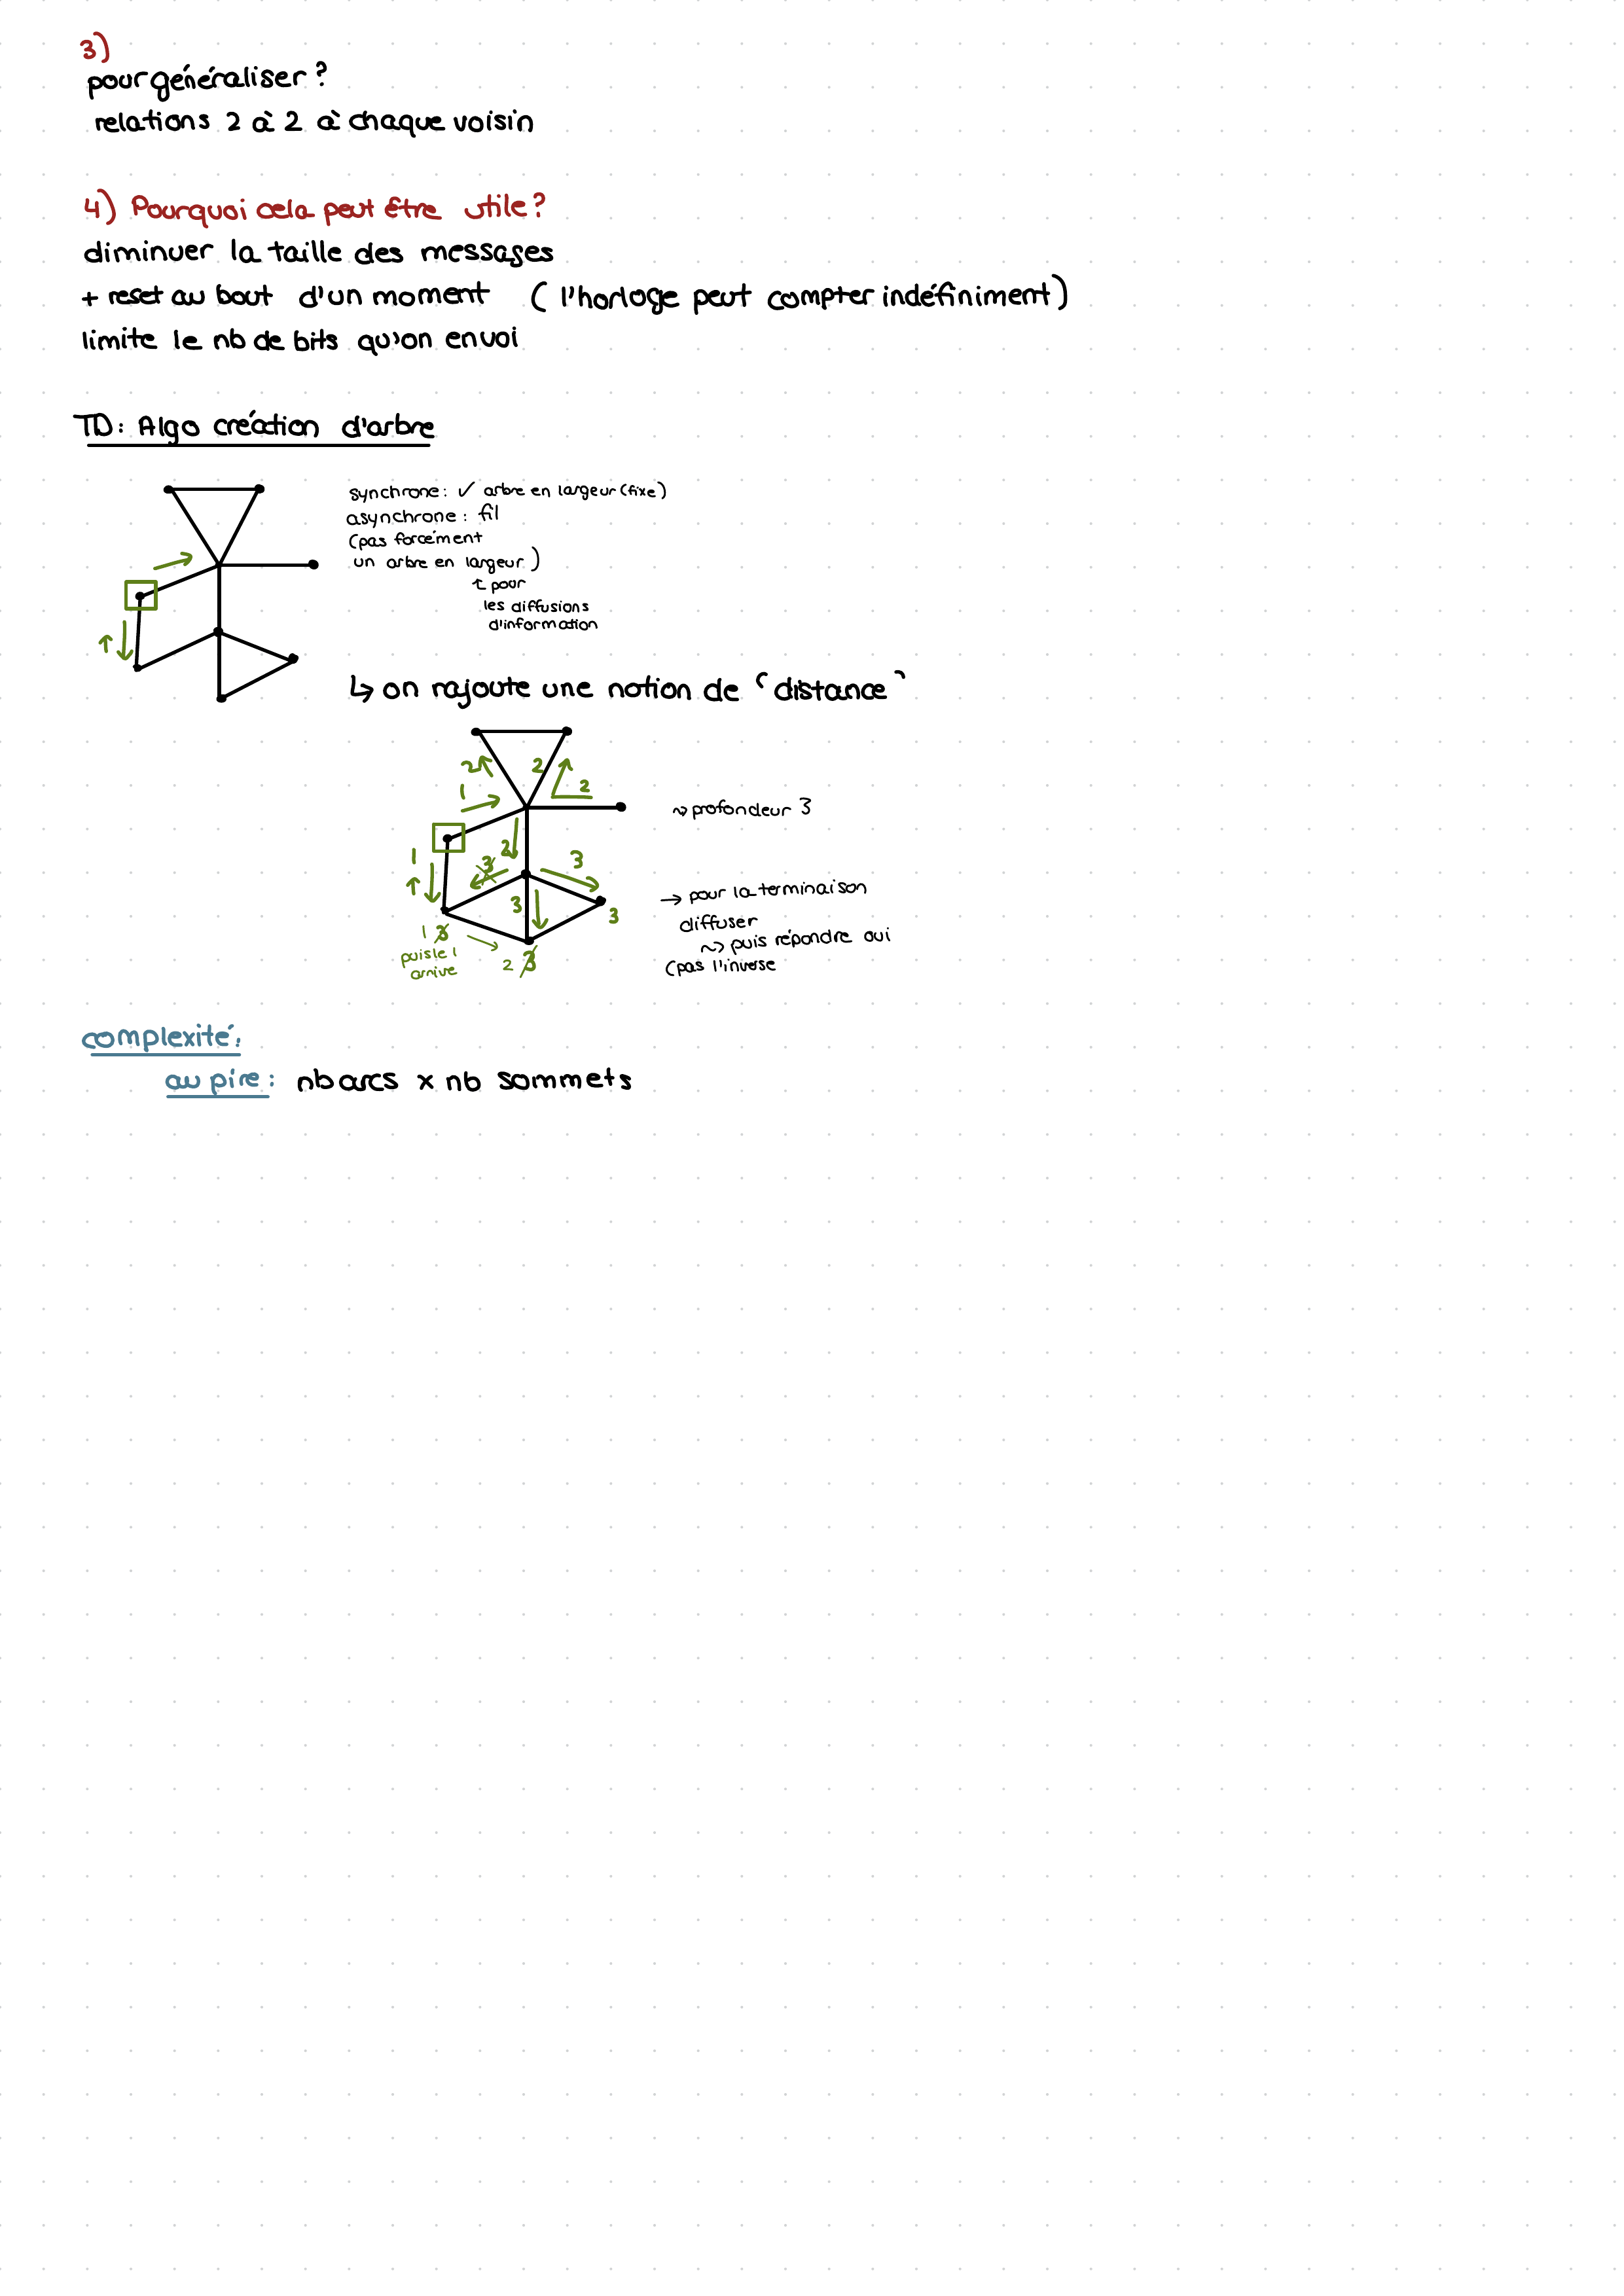 3)
pour généraliser ?
relations 2 à 2 à chaque voisin
4) Pourquoi cela peut être utile ?
diminuer la taille des messages
+ reset au bout d'un moment ( l'horloge peut compter indéfiniment )
limite le nb de bits qu'on envoi
TD : Algo création d'arbre
synchrone : ✓ arbre en largeur (fixe)
asynchrone : fil
(pas forcément
un arbre en largeur )
↑ pour
les diffusions
d'information
↑ ↓
↳ on rajoute une notion de "distance"
2 2 2
1
~> profondeur 3
1 2
↑ 3 3
3 3
→ pour la terminaison
diffuser
~> puis répondre oui
(pas l'inverse
1 3
puis le 1
arrive
2 3
complexité :
au pire : nb arcs x nb sommets